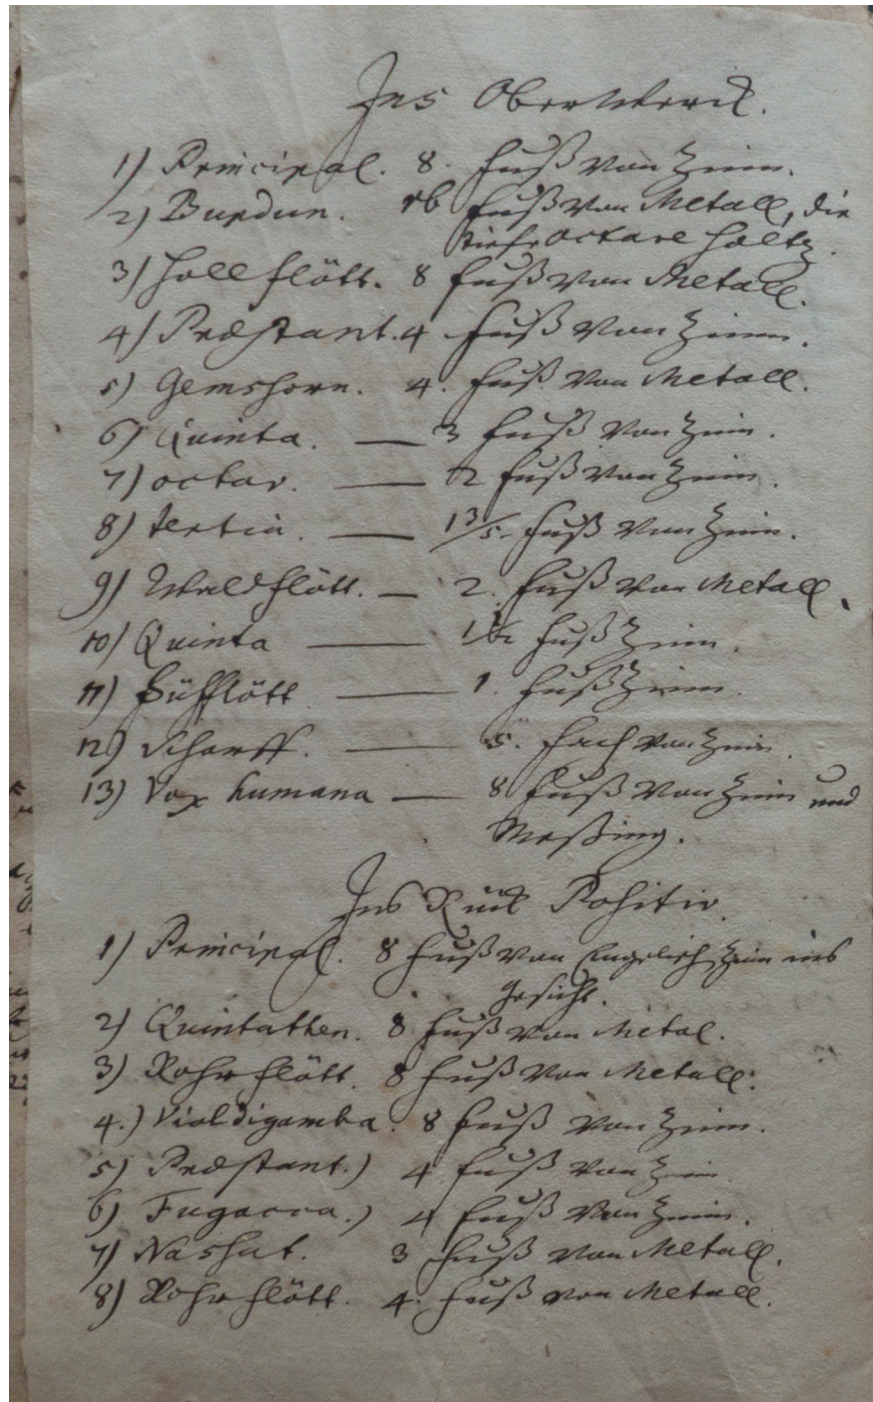 Ins OberWerck.
1) Principal. 8. Fuß von Zinn.
2) Burdun. 16 Fuß von Metall, die
tiefe Octave Holtz.
3) Hollflött. 8 Fuß von Metall.
4) Præstant. 4 Fuß von Zinn.
5) Gemshorn. 4. Fuß von Metall.
6) Quinta. — 3 Fuß von Zinn.
7) octav. — 2 Fuß von Zinn.
8) tertia. — 1 3/5. Fuß von Zinn.
9) Waldflött. — 2. Fuß von Metall.
10) Quinta — 1 1/2 Fuß Zinn.
11) Süfflött — 1. Fuß Zinn.
12) Scharff. — 5. fach von Zinn.
13) Vox humana — 8 Fuß von Zinn und
Meßing.
Ins Rück Positiv.
1) Principal. 8 Fuß von Englisch Zinn ins
Gesicht.
2) Quintathen. 8 Fuß von Metal.
3) Rohrflött. 8 Fuß von Metall.
4.) Violdigamba. 8 Fuß von Zinn.
5) Præstant.) 4 Fuß von Zinn
6) Fugarra.) 4 Fuß von Zinn.
7) Nashat. 3 Fuß von Metall.
8) Rohrflött. 4. Fuß von Metall.